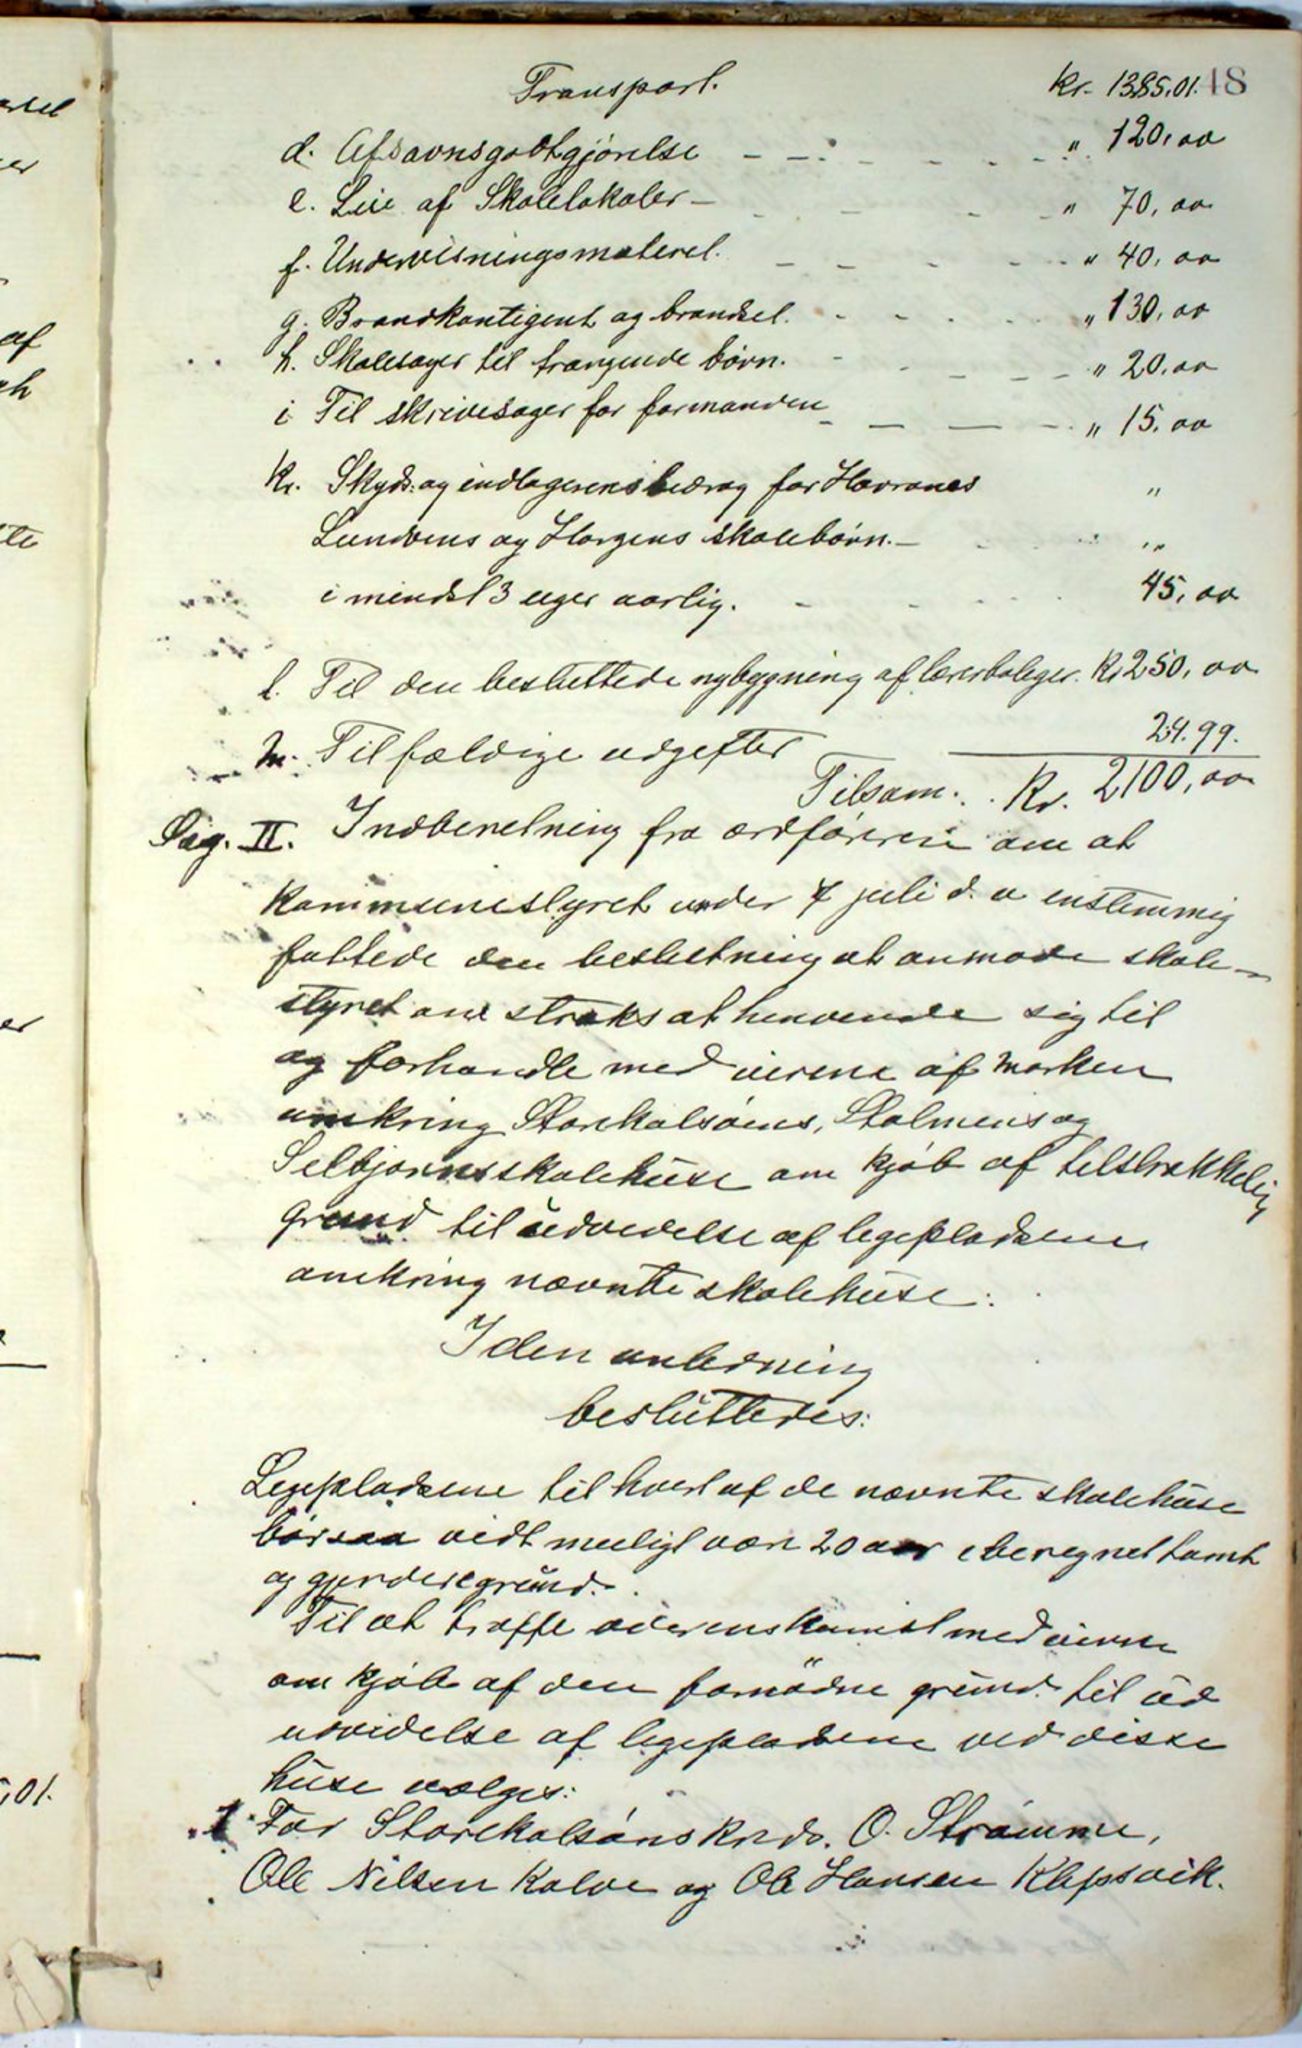 Transport. Kr. 1385.01. 48
d. Afsavnsgodtgjörelse " 120,00
e. Leie af Skolelokaler " 70,00
f. Undervisningsmateriel. " 40,00
g. Brandkontigent og brændsel. " 130,00
h. Skolesager til trængende börn. " 20,00
i Til skrivesager for formanden " 15,00
k. Skyds: og indlogerensbidrag for Havranes "
Lundens og Horgens skolebörn. "
i mindst 3 uger aarlig. 45,00
l. Til den besluttede nybygning af lærerboliger. Kr 250,00
m. Tilfældige udgefter 24.99.
Tilsam. Kr. 2100,00
Sag. II. Indberetning fra ordföreren om at
kommunestyret under 7 juli d. a enstemmig
fattede den beslutning at anmode skole-
styret om straks at henvende sig til
og forhandle med eierne af marken
omkring Storekalsöens, Stolmens og
Selbjörnsskolehuse om kjöb af tilstrækkelig
grund til udvidelse af legepladsene
omkring nævnte skolehuse:
I den anledning
besluttedes:
Legepladsene til hvert af de nævnte skolehuse
bör saa vidt muligt være 20 aar iberegnet tomt
og gjerdesgrund.
Til at træffe overenskomst med eierne
om kjöb af den fornödne grund til ud
udvidelse af legepladsene ved disse
huse vælges:
1 For Storekalsöns krds. O. Strömme,
Ole Nilsen Kalve og Ole Hansen Kleppsvik.
af
er
te
,01.